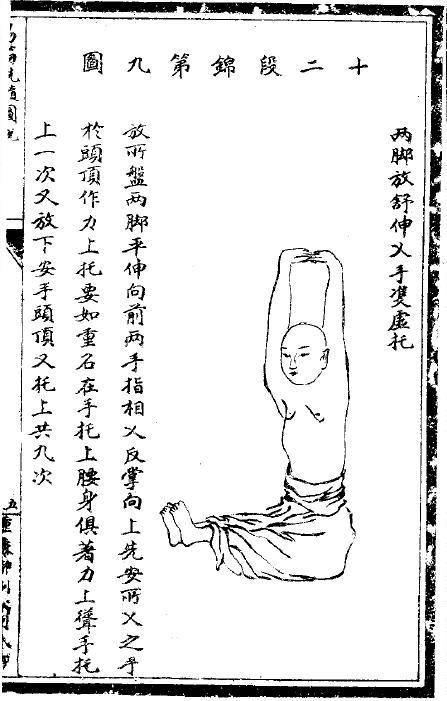 十二段錦第九圖
两脚放舒伸乂手雙虛托
放所盤两脚平伸向前两手指相乂反掌向上先安所乂之手
於頭頂作力上托要如重石在手托上腰身俱著力上聳手托
上一次又放下安手頭頂又托上共九次
五